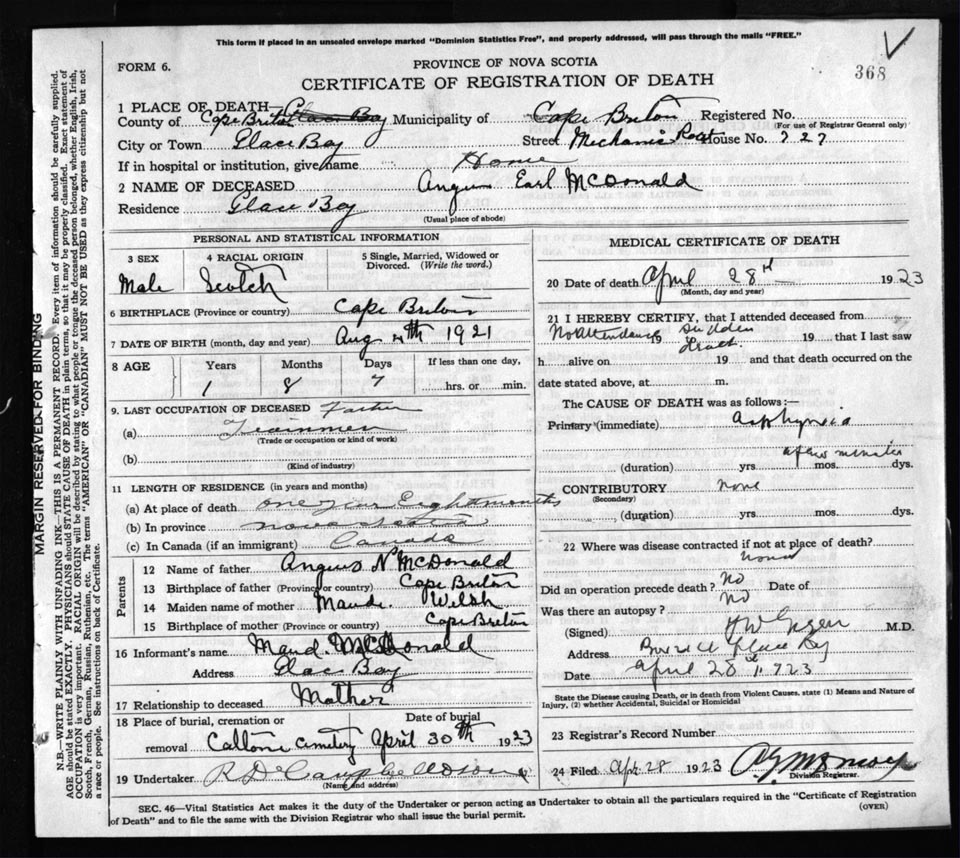 This form if placed in an unsealed envelope marked "Dominion Statistics Free", and properly addressed, will pass through the mails "FREE."
368
FORM 6.
PROVINCE OF NOVA SCOTIA
CERTIFICATE OF REGISTRATION OF DEATH
1 PLACE OF DEATH—
County of Cape Breton Glace Bay Municipality of Cape Breton Registered No.
(For use of Registrar General only)
City or Town Glace Bay Street Mechanic Road House No. 227
If in hospital or institution, give name Home
2 NAME OF DECEASED Angus Earl McDonald
Residence Glace Bay
(Usual place of abode)
PERSONAL AND STATISTICAL INFORMATION
3 SEX 4 RACIAL ORIGIN 5 Single, Married, Widowed or Divorced. (Write the word.)
Male Scotch
6 BIRTHPLACE (Province or country) Cape Breton
7 DATE OF BIRTH (month, day and year) Aug th 1921
8 AGE Years Months Days If less than one day,
1 8 7 hrs. or min.
9. LAST OCCUPATION OF DECEASED Father
(a)
(Trade or occupation or kind of work)
(b)
(Kind of industry)
11 LENGTH OF RESIDENCE (in years and months)
(a) At place of death one year Eight months
(b) In province nova scotia
(c) In Canada (if an immigrant) Canada
Parents
12 Name of father Angus N McDonald
13 Birthplace of father (Province or country) Cape Breton
14 Maiden name of mother Maude Welsh
15 Birthplace of mother (Province or country) Cape Breton
16 Informant's name Maud McDonald
Address Glace Bay
17 Relationship to deceased Mother
18 Place of burial, cremation or removal cemetery
Date of burial April 30th 1923
19 Undertaker R D Campbell
(Name and address)
MEDICAL CERTIFICATE OF DEATH
20 Date of death April 28th 1923
(Month, day and year)
21 I HEREBY CERTIFY, that I attended deceased from
No attendance to Sudden Death 19 that I last saw
h alive on 19 and that death occurred on the
date stated above, at m.
The CAUSE OF DEATH was as follows:—
Primary (immediate) Asphyxia
a few minutes
(duration) yrs. mos. dys.
CONTRIBUTORY none
(Secondary)
(duration) yrs. mos. dys.
22 Where was disease contracted if not at place of death?
Did an operation precede death? No Date of
Was there an autopsy? No
(Signed) M.D.
Address Glace Bay
Date April 28 1923
State the Disease causing Death, or in death from Violent Causes, state (1) Means and Nature of Injury, (2) whether Accidental, Suicidal or Homicidal
23 Registrar's Record Number
24 Filed Apl 28 1923
Division Registrar.
SEC. 46—Vital Statistics Act makes it the duty of the Undertaker or person acting as Undertaker to obtain all the particulars required in the "Certificate of Registration
of Death" and to file the same with the Division Registrar who shall issue the burial permit.
(OVER)
MARGIN RESERVED FOR BINDING
N.B.—WRITE PLAINLY WITH UNFADING INK—THIS IS A PERMANENT RECORD. Every item of information should be carefully supplied.
AGE should be stated EXACTLY. PHYSICIANS should STATE CAUSE OF DEATH in plain terms, so that it may be properly classified. Exact statement of
OCCUPATION is very important. RACIAL ORIGIN will be described by stating to what people or tongue the deceased person belonged, whether English, Irish,
Scotch, French, German, Russian, Ruthenian, etc. The terms "AMERICAN" OR "CANADIAN" MUST NOT BE USED as they express citizenship but not
a race or people. See instructions on back of Certificate.